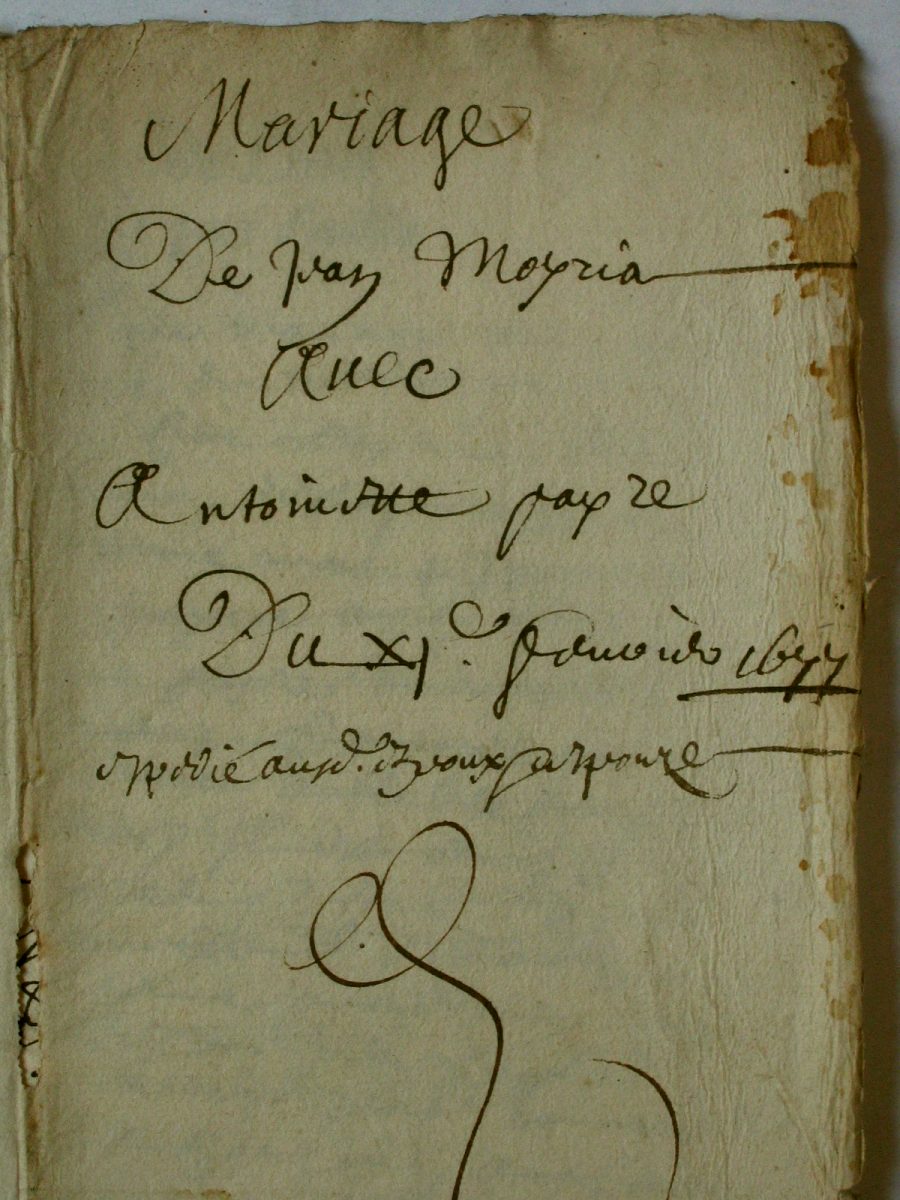 Mariage
De Jean Moyria
Auec
Antoinette payre
Du xj.e Januier 1677
expedié ausd. Espoux